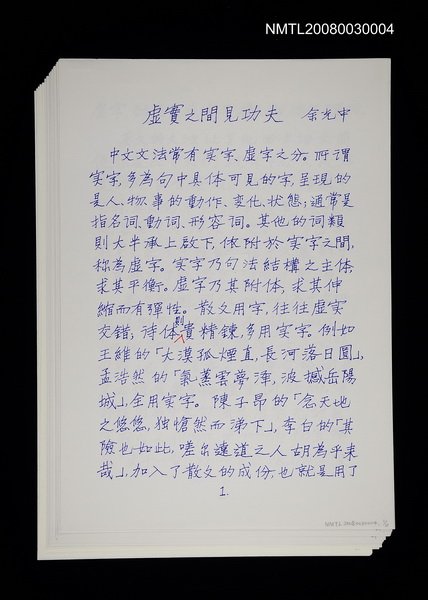 NMTL20080030004
虛實之間見功夫 余光中
中文文法常有实字、虛字之分。所謂
实字，多為句中具体可見的字，呈現的
是人、物、事的動作、变化、状態；通常是
指名词、動词、形容词。其他的词類
則大半承上啟下，依附於实字之間，
称為虛字。实字乃句法結構之主体，
求其平衡。虛字乃其附体，求其伸
縮而有彈性。散文用字，往往虛实
交錯；詩体則貴精鍊，多用实字。例如
王維的「大漠孤煙直，長河落日圓」，
孟浩然的「氣蒸雲夢澤，波撼岳陽
城」，全用实字。陳子昂的「念天地
之悠悠，独愴然而涕下」，李白的「其
險也如此，嗟爾遠道之人胡為乎来
哉」，加入了散文的成份，也就是用了
1.
NMTL20080030004,